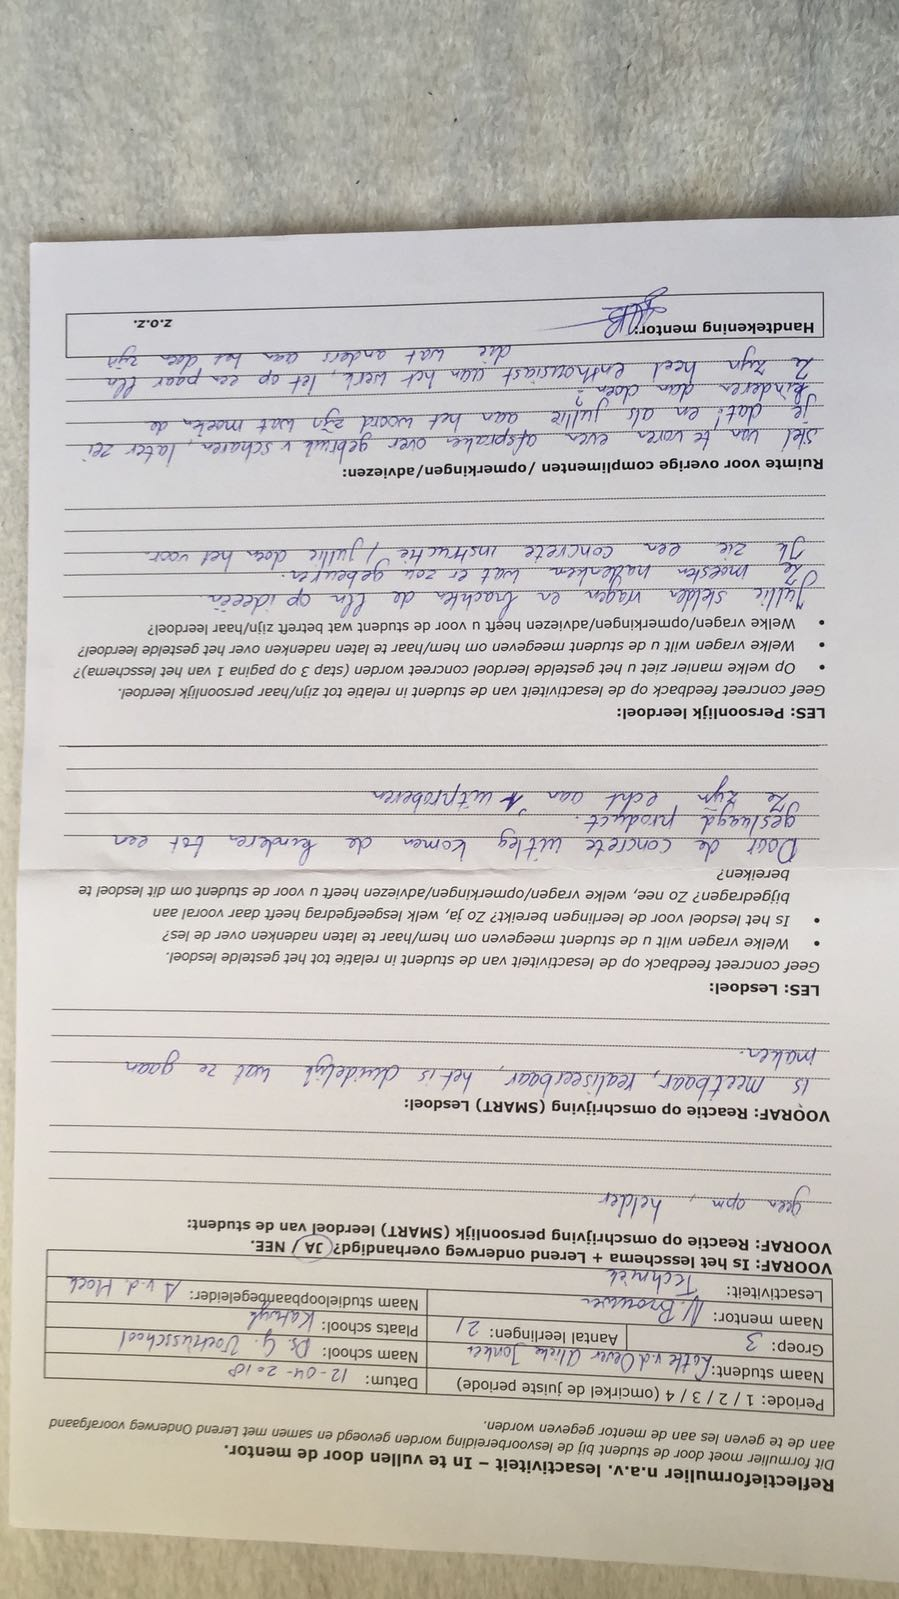 Reflectieformulier n.a.v. lesactiviteit – In te vullen door de mentor.
Dit formulier moet door de student bij de lesvoorbereiding worden gevoegd en samen met Lerend Onderweg voorafgaand
aan de te geven les aan de mentor gegeven worden.
Periode: 1 / 2 / 3 / 4 (omcirkel de juiste periode) Datum: 12-04-2018
Naam student: Lotte v.d. Oever Alicia Jonker Naam school: Ds. G. Voetiusschool
Groep: 3 Aantal leerlingen: 21 Plaats school: Katwijk
Naam mentor: N. Brouwer Naam studieloopbaanbegeleider: A v.d. Hoek
Lesactiviteit: Techniek
VOORAF: Is het lesschema + Lerend onderweg overhandigd? JA / NEE.
VOORAF: Reactie op omschrijving persoonlijk (SMART) leerdoel van de student:
geen opm, helder
VOORAF: Reactie op omschrijving (SMART) Lesdoel:
is meetbaar, realiseerbaar, het is duidelijk wat ze gaan
maken.
LES: Lesdoel:
Geef concreet feedback op de lesactiviteit van de student in relatie tot het gestelde lesdoel.
• Welke vragen wilt u de student meegeven om hem/haar te laten nadenken over de les?
• Is het lesdoel voor de leerlingen bereikt? Zo ja, welk lesgeefgedrag heeft daar vooral aan
bijgedragen? Zo nee, welke vragen/opmerkingen/adviezen heeft u voor de student om dit lesdoel te
bereiken?
Door de concrete uitleg komen de kinderen tot een
geslaagd product.
Ze zijn echt aan 't uitproberen
LES: Persoonlijk leerdoel:
Geef concreet feedback op de lesactiviteit van de student in relatie tot zijn/haar persoonlijk leerdoel.
• Op welke manier ziet u het gestelde leerdoel concreet worden (stap 3 op pagina 1 van het lesschema?)
• Welke vragen wilt u de student meegeven om hem/haar te laten nadenken over het gestelde leerdoel?
• Welke vragen/opmerkingen/adviezen heeft u voor de student wat betreft zijn/haar leerdoel?
Jullie stelden vragen en brachten de lln op ideeën
Ze moesten nadenken wat er zou gebeuren.
Ik zie een concrete instructie, jullie doen het voor.
Ruimte voor overige complimenten / opmerkingen/adviezen:
Stel van te voren even afspraken over gebruik v scharen, later zei
je dat! en als jullie aan het woord zijn wat moeten de
kinderen dan doen?
Ze zijn heel enthousiast aan het werk, let op een paar lln
die wat anders aan het doen zijn
Handtekening mentor: z.o.z.